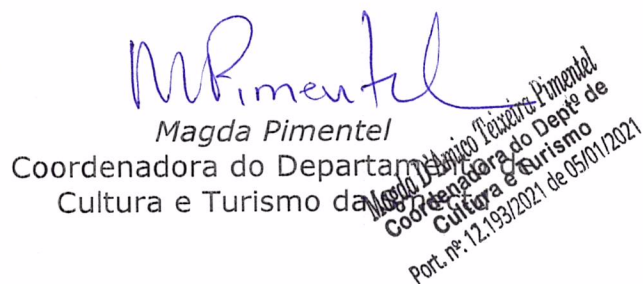 MPimentel
Magda Pimentel
Coordenadora do Departamento de
Cultura e Turismo da
Magda D'Amico Teixeira Pimentel
Coordenadora do Deptº de
Cultura e Turismo
Port. nº: 12.193/2021 de 05/01/2021